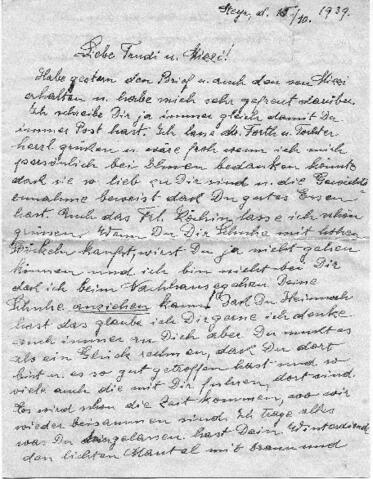 Steyr, d. 15/10. 1939.
Liebe Trudi u. Miezi!
Habe gestern den Brief u. auch den von Miezi
erhalten u. habe mich sehr gefreut darüber.
Ich schreibe Dir ja immer gleich damit Du
immer Post hast. Ich lasse d. Forth u. Tochter
herzl grüssen u. wäre froh wenn ich mich
persönlich bei Ihnen bedanken könnte
daß sie so lieb zu Dir sind u. die Gewichts
zunahme beweist daß Du gutes Essen
hast. Auch das Frl. Köchin lasse ich schön
grüssen. Wenn Du Dir Schuhe mit hohen
Stöckeln kaufst, wirst Du ja nicht gehen
können und ich bin nicht bei Dir
daß ich beim Nachhausegehen Deine
Schuhe anziehen kann. Daß Du Heimweh
hast das glaube ich Dir gerne ich denke
auch immer zu Dich aber Du mußt es
als ein Glück nehmen, daß Du dort
bist u. es so gut getroffen hast und so
viele auch die mit Dir fuhren, dort sind.
Es wird schon die Zeit kommen, wo wir
wieder beisammen sind. Ich trage alles
was Du dagelassen hast Dein Winterdirndl
den lichten Mantel mit braun und